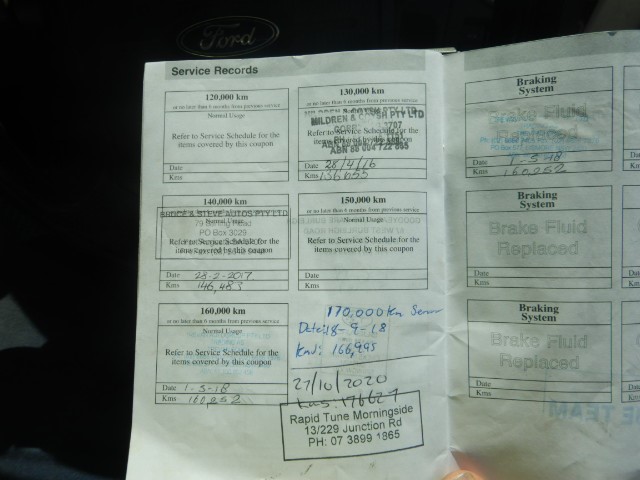 Ford
Service Records
120,000 km
or no later than 6 months from previous service
Normal Usage
Refer to Service Schedule for the
items covered by this coupon
Date
Kms
130,000 km
or no later than 6 months from previous service
MILDREN & PTY LTD
Refer to Service Schedule for the
items covered by this coupon
Date 28/4/16
Kms 136055
140,000 km
or no later than 6 months from previous service
BRUCE & STEVE AUTOS PTY LTD
Normal Usage
PO Box 3029
Refer to Service Schedule for the
items covered by this coupon
Date 28-2-2017
Kms 146,483
150,000 km
or no later than 6 months from previous service
Normal Usage
Refer to Service Schedule for the
items covered by this coupon
Date
Kms
160,000 km
or no later than 6 months from previous service
Normal Usage
Refer to Service Schedule for the
items covered by this coupon
Date 1-5-18
Kms 160,252
170,000 Km
Date: 18-9-18
Kms: 166,995
27/10/2020
kms 176627
Rapid Tune Morningside
13/229 Junction Rd
PH: 07 3899 1865
Braking
System
Brake Fluid
Replaced
Date 1-5-18
Kms 160,252
Braking
System
Brake Fluid
Replaced
Date
Kms
Braking
System
Brake Fluid
Replaced
Date
Kms